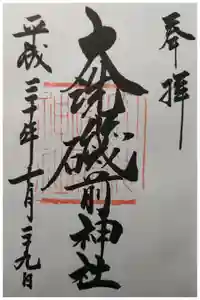 奉拝
大洗磯前神社
平成三十年十月二十九日